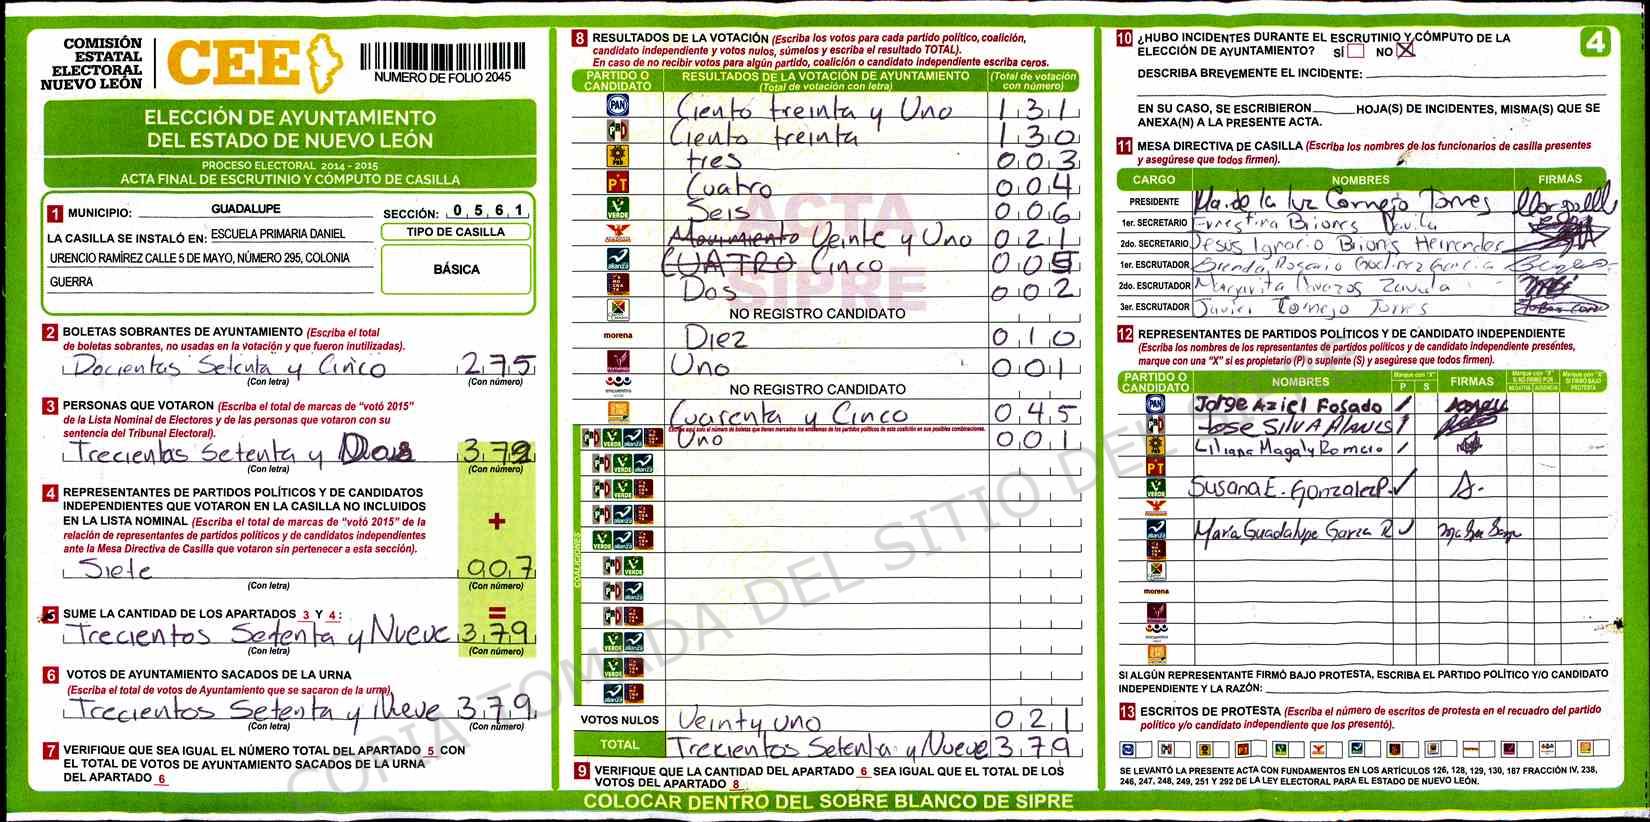 COMISIÓN
ESTATAL
ELECTORAL
NUEVO LEÓN
CEE
NUMERO DE FOLIO 2045
ELECCIÓN DE AYUNTAMIENTO
DEL ESTADO DE NUEVO LEÓN
PROCESO ELECTORAL 2014 - 2015
ACTA FINAL DE ESCRUTINIO Y CÓMPUTO DE CASILLA
1 MUNICIPIO: GUADALUPE SECCIÓN: 0 5 6 1
LA CASILLA SE INSTALÓ EN: ESCUELA PRIMARIA DANIEL
URENCIO RAMÍREZ CALLE 5 DE MAYO, NÚMERO 295, COLONIA
GUERRA
TIPO DE CASILLA
BÁSICA
2 BOLETAS SOBRANTES DE AYUNTAMIENTO (Escriba el total
de boletas sobrantes, no usadas en la votación y que fueron inutilizadas).
Docientas Setenta y Cinco 275
(Con letra) (Con número)
3 PERSONAS QUE VOTARON (Escriba el total de marcas de "votó 2015"
de la Lista Nominal de Electores y de las personas que votaron con su
sentencia del Tribunal Electoral).
Trecientas Setenta y Dos 372
(Con letra) (Con número)
4 REPRESENTANTES DE PARTIDOS POLÍTICOS Y DE CANDIDATOS
INDEPENDIENTES QUE VOTARON EN LA CASILLA NO INCLUIDOS
EN LA LISTA NOMINAL (Escriba el total de marcas de "votó 2015" de la
relación de representantes de partidos políticos y de candidatos independientes
ante la Mesa Directiva de Casilla que votaron sin pertenecer a esta sección).
+
Siete 007
(Con letra) (Con número)
=
5 SUME LA CANTIDAD DE LOS APARTADOS 3 Y 4:
Trecientos Setenta y Nueve 379
(Con letra) (Con número)
6 VOTOS DE AYUNTAMIENTO SACADOS DE LA URNA
(Escriba el total de votos de Ayuntamiento que se sacaron de la urna).
Trecientos Setenta y Nueve 379
(Con letra) (Con número)
7 VERIFIQUE QUE SEA IGUAL EL NÚMERO TOTAL DEL APARTADO 5 CON
EL TOTAL DE VOTOS DE AYUNTAMIENTO SACADOS DE LA URNA
DEL APARTADO 6
8 RESULTADOS DE LA VOTACIÓN (Escriba los votos para cada partido político, coalición,
candidato independiente y votos nulos, súmelos y escriba el resultado TOTAL).
En caso de no recibir votos para algún partido, coalición o candidato independiente escriba ceros.
PARTIDO O CANDIDATO RESULTADOS DE LA VOTACIÓN DE AYUNTAMIENTO (Total de votación con letra) (Total de votación con número)
PAN Ciento treinta y Uno 131
Ciento treinta 130
PRD tres 003
PT Cuatro 004
VERDE Seis 006
Movimiento Veinte y Uno 021
alianza CUATRO Cinco 005
Dos 002
NO REGISTRO CANDIDATO
morena Diez 010
Uno 001
NO REGISTRO CANDIDATO
Cuarenta y Cinco 045
Uno 001
COALICIONES
VOTOS NULOS Veinty uno 021
TOTAL Trecientos Setenta y Nueve 379
9 VERIFIQUE QUE LA CANTIDAD DEL APARTADO 6 SEA IGUAL QUE EL TOTAL DE LOS
VOTOS DEL APARTADO 8
ACTA
SIPRE
COPIA TOMADA DEL SITIO DEL
COLOCAR DENTRO DEL SOBRE BLANCO DE SIPRE
4
10 ¿HUBO INCIDENTES DURANTE EL ESCRUTINIO Y CÓMPUTO DE LA
ELECCIÓN DE AYUNTAMIENTO? SÍ NO X
DESCRIBA BREVEMENTE EL INCIDENTE:
EN SU CASO, SE ESCRIBIERON HOJA(S) DE INCIDENTES, MISMA(S) QUE SE
ANEXA(N) A LA PRESENTE ACTA.
11 MESA DIRECTIVA DE CASILLA (Escriba los nombres de los funcionarios de casilla presentes
y asegúrese que todos firmen).
CARGO NOMBRES FIRMAS
PRESIDENTE Ma. de la luz Cornejo Torres
1er. SECRETARIO Ernestina Briones Davila
2do. SECRETARIO Jesús Ignacio Briones Hernandez
1er. ESCRUTADOR Brenda Rosario
2do. ESCRUTADOR Margarita Zavala
3er. ESCRUTADOR Javier Cornejo Torres
12 REPRESENTANTES DE PARTIDOS POLÍTICOS Y DE CANDIDATO INDEPENDIENTE
(Escriba los nombres de los representantes de partidos políticos y de candidato independiente presentes,
marque con una "X" si es propietario (P) o suplente (S) y asegúrese que todos firmen).
PARTIDO O CANDIDATO NOMBRES Marque con "X" P S FIRMAS Marque con "X" SI NO FIRMÓ POR NEGATIVA AUSENCIA Marque con "X" SI FIRMÓ BAJO PROTESTA
PAN Jorge Aziel Posado
Jose Silva Alanis
PRD Liliana Magaly Romero
PT
VERDE Susana E. Gonzalez P.
alianza María Guadalupe Garza R
morena
SI ALGÚN REPRESENTANTE FIRMÓ BAJO PROTESTA, ESCRIBA EL PARTIDO POLÍTICO Y/O CANDIDATO
INDEPENDIENTE Y LA RAZÓN:
13 ESCRITOS DE PROTESTA (Escriba el número de escritos de protesta en el recuadro del partido
político y/o candidato independiente que los presentó).
SE LEVANTÓ LA PRESENTE ACTA CON FUNDAMENTOS EN LOS ARTÍCULOS 126, 128, 129, 130, 187 FRACCIÓN IV, 238,
246, 247, 248, 249, 251 Y 292 DE LA LEY ELECTORAL PARA EL ESTADO DE NUEVO LEÓN.